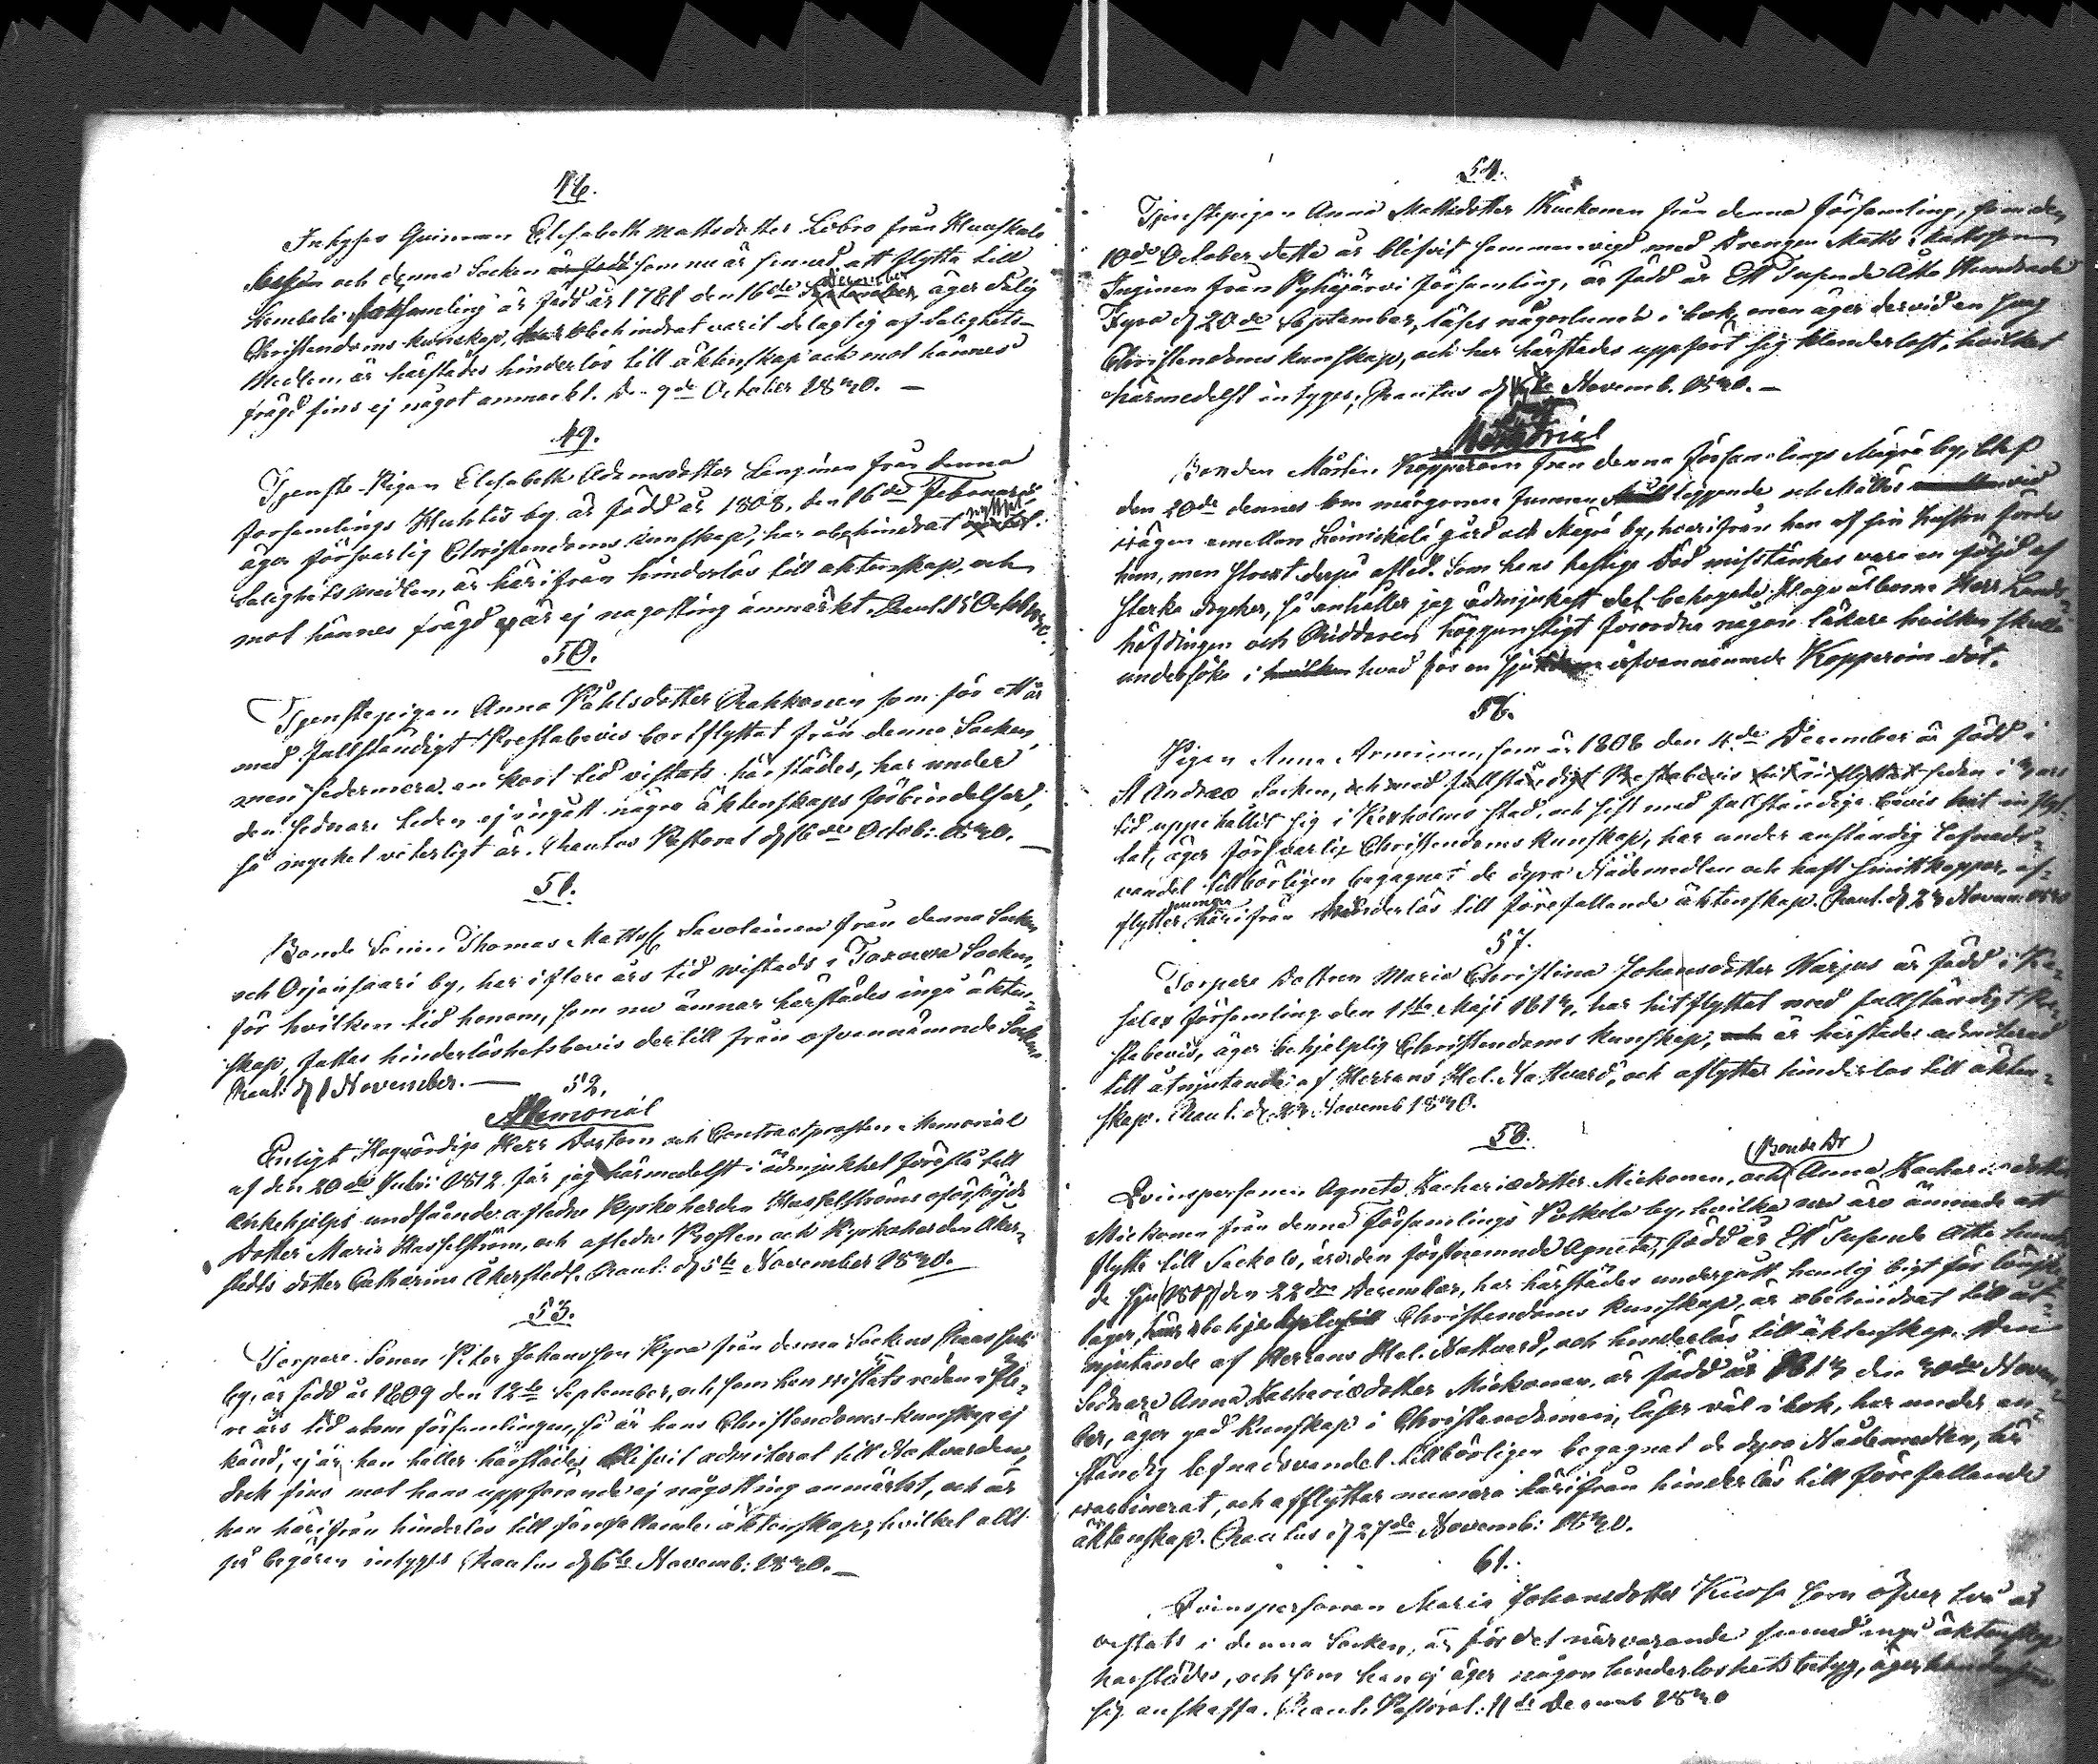 46.
Inhyses Qvinnan Elisabeth Mattsdotter Lobro från
och denna Socken som nu är sinnad att flytta till
Kembala församling är född år 1781 den 16de December, äger
Christendoms kunskap, har obehindrat varit delagtig af Salighets-
Medlen, är härstädes hinderlös till äktenskap och mot hännes
frägd fins ej något anmärkt. Den 9de October 1830. —
49.
Tjenste-Pigan Elisabeth Adamsdotter Lenginen från denna
församlings Huhtis by är född år 1808, den 16de Februarii,
äger försvarlig Christendoms kunskap, har obehindrat nyttjat
Salighetsmedlen, är härifrån hinderlös till äktenskap, och
mot hännes frägd är ej nagotting anmärkt. Raut. 15 October
50.
Tjenstepigan Anna Påhlsdotter Rahkonen som för ett år
med fullständigt Prestabevis bortflyttat från denna Socken,
men sedermera en kort tid vistats härstädes, har under
den sednare tiden ej ingått några äktenskaps förbindelser,
så mycket veterligt är. Rautus Pastorat d 16de Octob: 1830. —
51.
Bonde Sonen Thomas Matts Savolainen från denna Socken
och Orjansaari by, har i flere års tid vistads i Toxova Socken,
för hvilken tid honom, som nu ämnar härstädes ingå äkten-
skap, fattas hinderlöshetsbevis dertill från ofvannämnde Socken
Raut: d 1 November. —
52.
Memorial
Enligt Högvördige Herr Doctorn och Contractprosten Memorial
af den 20de Julii 1812 får jag härmedelst i ödmjukhet föreslå till
Enkehjelps undfående aflidne Kyrkoherden Hasselströms oförsörjde
Dotter Maria Hasselström, och aflidne Prosten och Kyrkoherden Åker-
stedts dotter Catharina Åkerstedt. Raut: d 5te November 1830.
53.
Torpare Sonen Peter Johansson Kyra från denna Sockens Raasuli
by, är född år 1809 den 12te September, och som han vistats redan i fle-
re års tid utom församlingen, så är hans Christendoms-kunskap ej
känd, ej är han heller härstädes blifvit admitterat till Nattvarden,
dock fins mot hans uppförande ej någotting anmärkt, och är
han härifrån hinderlös till förefallande äktenskap, hvilket allt
på begäran intygas Rautus d 6te Novemb: 1830. —
54.
Tjenstepigan Anna Mattsdotter Kuckonen från denna församling, som den
10de October detta år blifvit sammanvigd med Drengen Matts Mattsson
Inginen från Pyhäjärvi församling, är född år Ett Tusende Åtta Hundrade
Fyra d 20de September, läses någorlunda i bok, men äger dervid en svag
Christendoms kunskap, och har härstädes uppfört sig klanderlöst, hvilket
härmedelst intygas, Rautus d Novemb. 1830. —
Memorial
Bonden Mårten Kopperoin från denna församlings Mägrä by, blef
den 20de dennes om morgonen funnen liggande och Mållös
vägen emellan Leinickälä gård och Mägrä by, hvarifrån han af sin hustru fördes
hem, men straxt derpå afled. Som hans hastiga död misstänkes vara en följd af
starka drycker, så anhåller jag ödmjukast det behagade Högvälborne Herr Lands-
höfdingen och Riddaren höggunstigt förordna någon läkare hvilken skulle
undersöka i hvad för en ofvannämnde Kopperoin dött.
56.
Pigan Anna Arminen, som år 1808 den 4de December är född i
St Andreæ Socken, och med fullständigt Prestabevis hit inflyttat sedan i 3 års
tid uppehållit sig i Kexholms stad, och sist med fullständiga bevis hit inflyt-
tat, äger försvarlig Christendoms kunskap, har under anständig lefnads-
vandel tillbörligen begagnat de dyra Nådemedlen och haft smittkoppor, af-
flyttar härifrån hinderlös till förefallande äktenskap. Raut. d 23 Novem. 1830
57.
Torpare Dottren Maria Christina Johansdotter Warjus är född i
församling den 1ste Maji 1813, har hitflyttat med fullständigt Pre-
stabevis, äger behjelplig Christendoms kunskap, är härstädes admitterad
till åtnjutande af Herrans Hel. Nattvard, och aflyttar hinderlös till äkten-
skap. Raut. d 23 Novemb 1830.
58.
Bonde Dr
Qvinspersonen Agneta Zachariædotter Mickonen, och Anna Zachariædotter
Mickonen från denna församlings Potkela by, hvilka nu äro ämnade att
flytta till Sackola, äro den förstnemnde Agneta, född år Ett Tusende Åtta hundra-
de sju (1807) den 22dra December, har härstädes undergått hemlig bigt för lönska-
läger, behjelplig Christendoms kunskap, är obehindrat till åt-
njutande af Herrans Hel. Nattvard, och hinderlös till äktenskap. Den
Sednare Anna Zachariædotter Mickonen, är född år 1813 den 30de Novem-
ber, äger god kunskap i Christendomen, läser väl i bok, har under an-
ständig lefnadsvandel tillbörligen begagnat de dyra Nådemedlen, är
vaccinerat, och afflyttar numera härifrån hinderlös till förefallande
äktenskap. Rautus d 27de Novemb: 1830.
61.
Qvinspersonen Maria Johansdotter Kuosa som öfver två år
vistats i denna Socken, är för det närvarande sinnad ingå äktenskap
härstädes, och som han ej äger någon hinderlöshets betyg, äger
sig anskaffa. Raut. Pastorat: 11te Decemb 1830